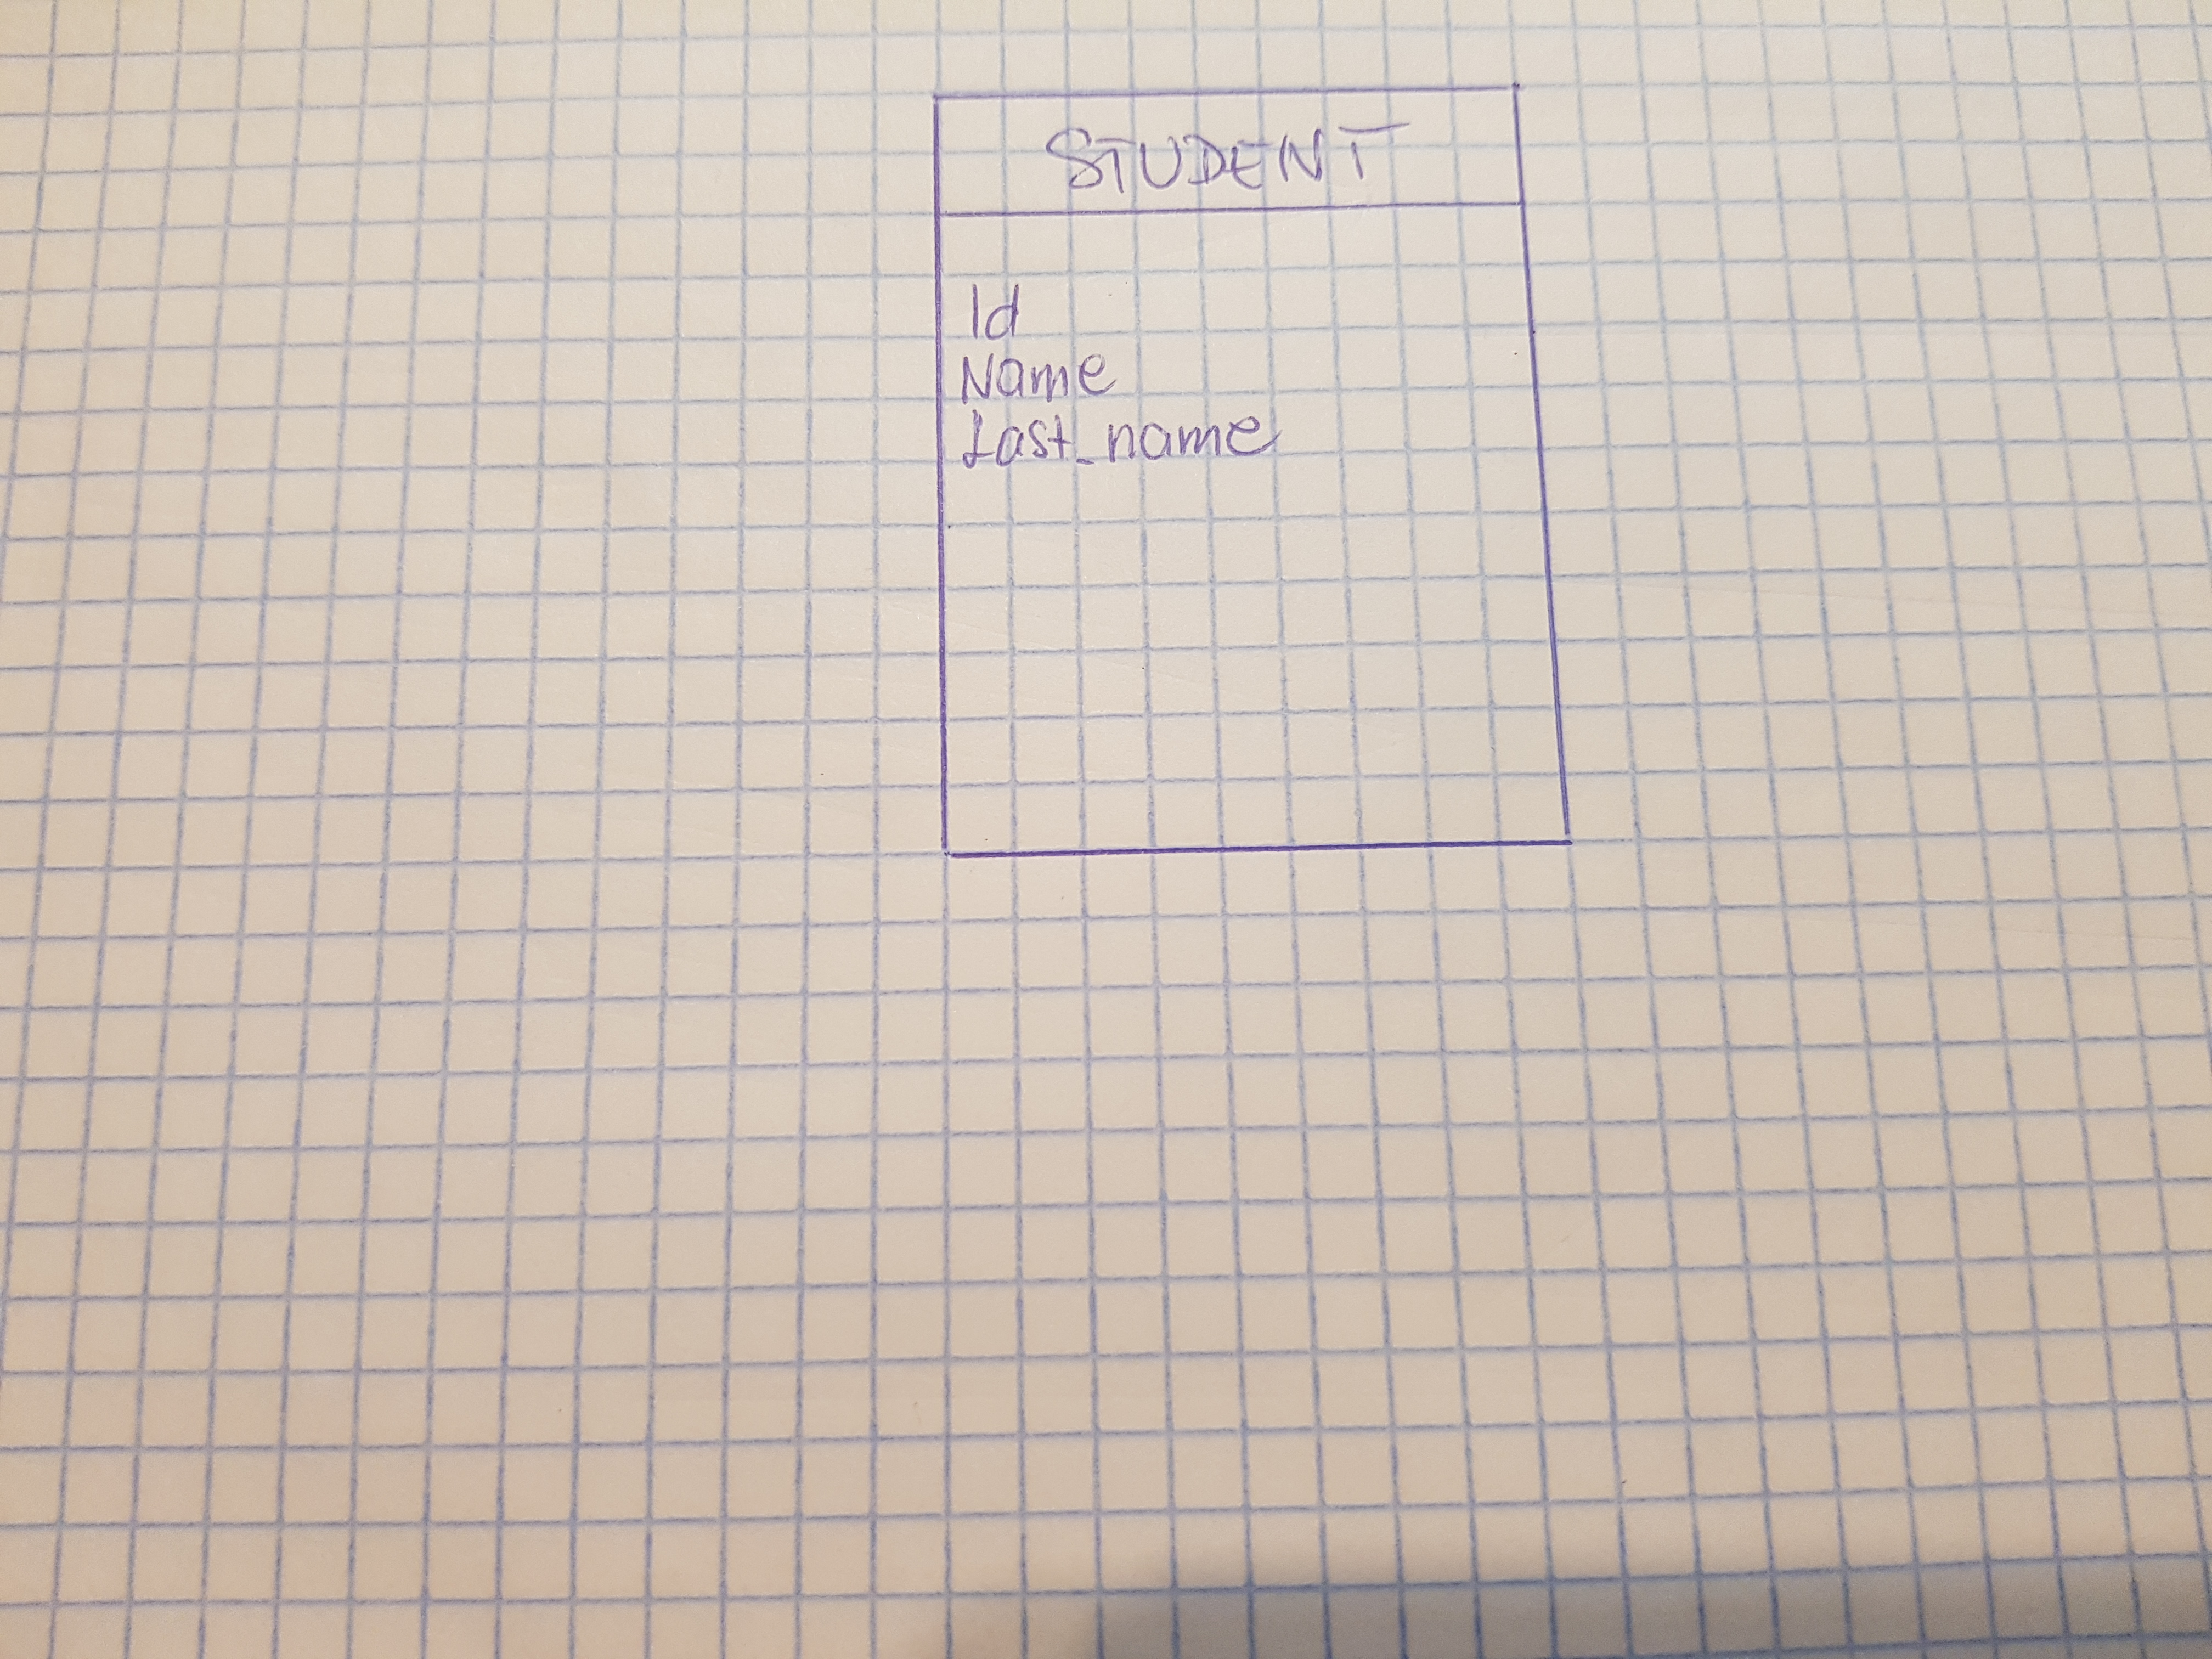 STUDENT
Id
Name
Last_name